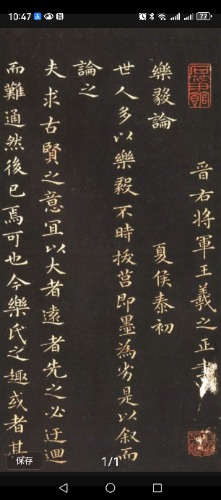 10:47
72
晉右將軍王羲之正書
樂毅論 夏侯泰初
世人多以樂毅不時拔莒即墨為劣是以叙而
論之
夫求古賢之意宜以大者遠者先之必迂迴
而難通然後已焉可也今樂氏之趣或者其
保存
1/1